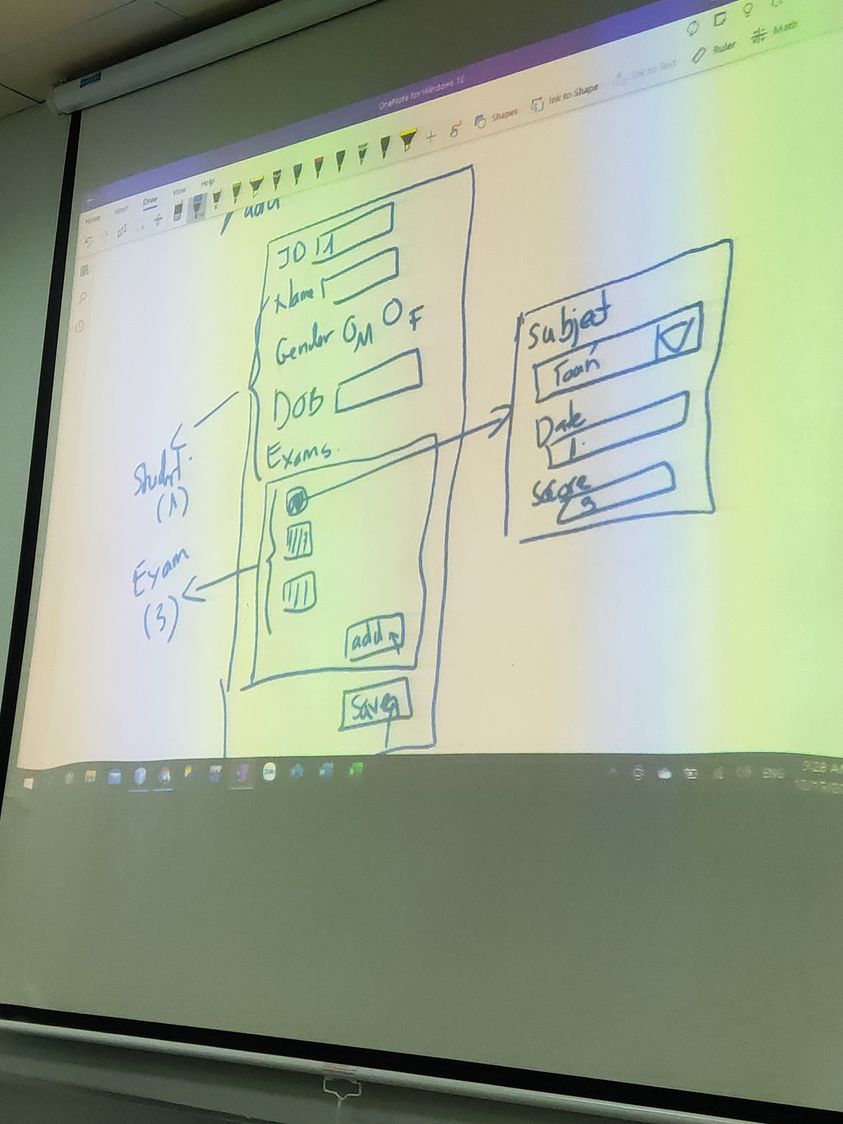 OneNote for Windows 10
Home Insert Draw View Help
Shapes Ink to Shape Ink to Text Ruler Math
/add
ID 1
Name
Gender M F
DOB
Exams
add
Save
Student
(1)
Exam
(3)
Subject
Toán
Date
1
Score
3
ENG